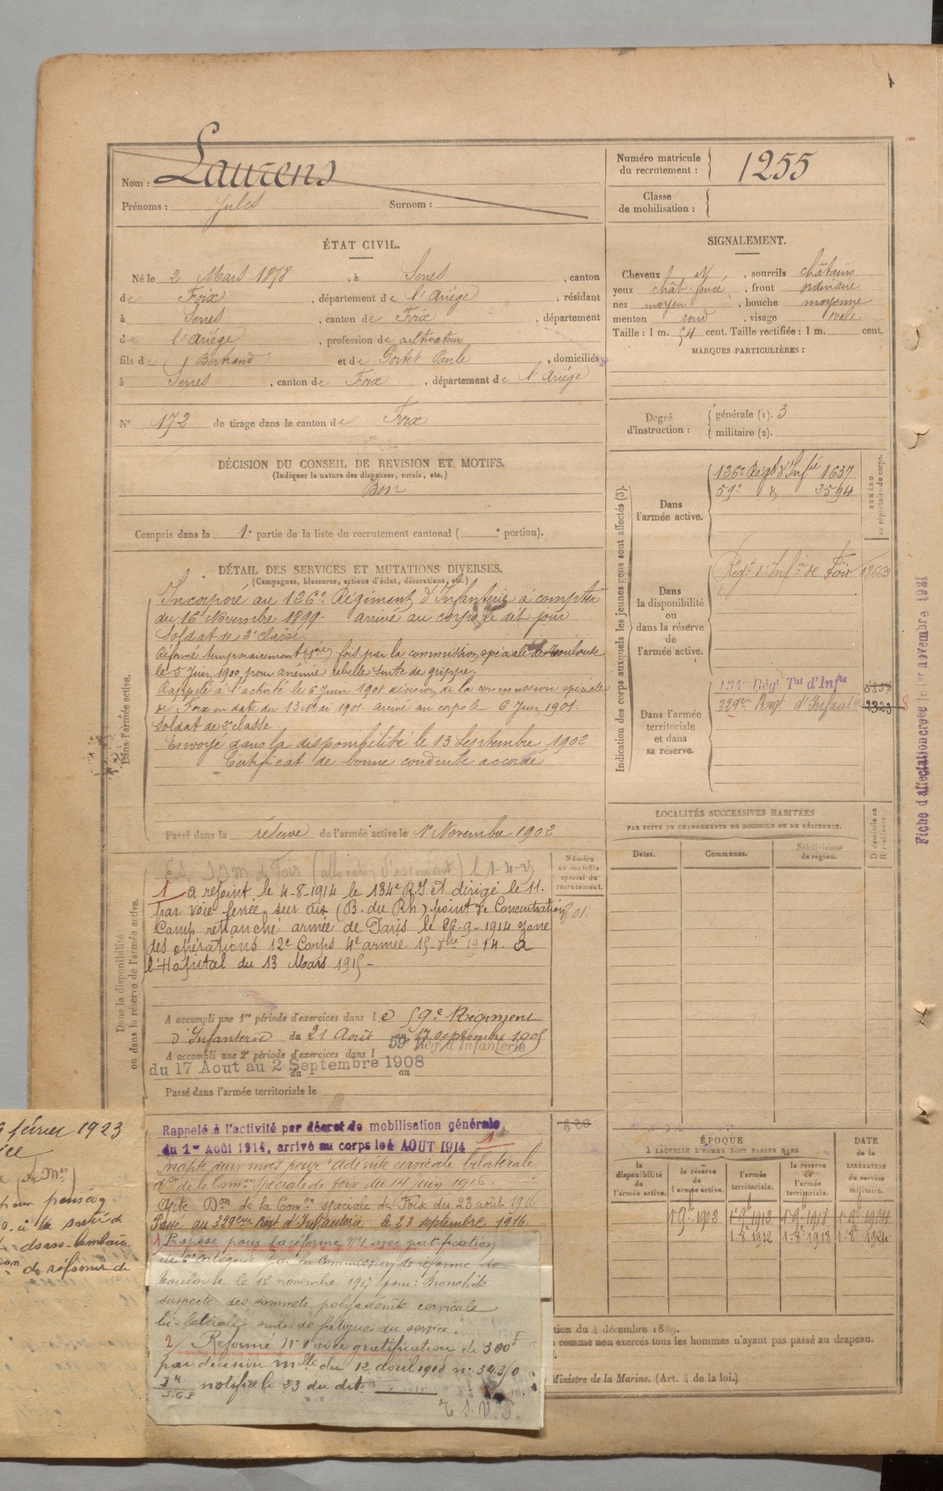 Nom : Laurens
Prénoms : Jules Surnom :
Numéro matricule du recrutement : 1255
Classe de mobilisation :
ÉTAT CIVIL.
Né le 2 Mars 1878, à Serres, canton
de Foix, département de l'Ariège, résidant
à Serres, canton de Foix, département
de l'Ariège, profession de cultivateur
fils de Bertrand et de Portet Paule, domiciliés
à Serres, canton de Foix, département de l'Ariège
N° 172 de tirage dans le canton de Foix
DÉCISION DU CONSEIL DE REVISION ET MOTIFS.
(Indiquer la nature des dispenses, sursis, etc.)
Bon
Compris dans la 1e partie de la liste du recrutement cantonal ( e portion).
DÉTAIL DES SERVICES ET MUTATIONS DIVERSES.
(Campagnes, blessures, actions d'éclat, décorations, etc.)
Dans l'armée active.
Incorporé au 136e Régiment d'Infanterie à compter
du 16 Novembre 1899. arrivé au corps le dit jour
Soldat de 2e classe
Réformé temporairement (1re) fois par la commission spéciale de Toulouse
le 5 Juin 1900 pour anémie rebelle suite de grippe.
Rappelé à l'activité le 6 Juin 1901 décision de la commission spéciale
de Foix en date du 13 Mai 1901. arrivé au corps le 6 Juin 1901.
Soldat de 2e classe
Envoyé dans la disponibilité le 13 Septembre 1902
Certificat de bonne conduite accordé
Passé dans la réserve de l'armée active le 1er Novembre 1902
Dans la disponibilité ou dans la réserve de l'armée active.
Numéro au contrôle spécial du recrutement.
1 a rejoint le 4-8-1914 le 134e RTI et dirigé le 11.
par voie ferrée sur (B. du Rh) point de Concentration
Camp retranché armée de Paris le 26-9-1914 zone
des opérations 12e Corps 4e armée 15 8bre 1914. à
l'Hôpital du 13 Mars 1915 -
A accompli une 1re période d'exercices dans le 59e Régiment
d'Infanterie du 21 Août au 17 septembre 1905
A accompli une 2e période d'exercices dans l 59e Rég d'Infanterie
du 17 Aout au 2 Septembre 1908
Passé dans l'armée territoriale le
Rappelé à l'activité par décret de mobilisation générale
du 1er Août 1914, arrivé au corps le 4 AOUT 1914
Inapte deux mois pour adénite cervicale bilatérale
don de la Comon spéciale de foix du 14 juin 1916.
Apte Don de la Comon spéciale de Foix du 23 août 1916
Passé au 329eme Regt d'Infanterie le 23 septembre 1916
1 Proposé pour la réforme N°1 avec gratification
de catégorie par la Commission de réforme de
Toulouse le 12 novembre 1917 pour: Bronchite
suspecte des sommets, polyadénite cervicale
bi-latérale suites de fatigues du service.
2/ Réformé N°1 avec gratification de 300f
par décision mlle du 12 avril 1918 n° 3435/0
notifiée le 23 du dit
T. S. V. P.
février 1923
SIGNALEMENT.
Cheveux, sourcils châtains
yeux chât. foncé, front ordinaire
nez moyen, bouche moyenne
menton rond, visage ovale
Taille : 1 m. 54 cent. Taille rectifiée : 1 m. cent.
MARQUES PARTICULIÈRES :
Degré d'instruction : générale (1). 3
militaire (2).
Indication des corps auxquels les jeunes gens sont affectés (3).
Dans l'armée active.
136e Régt d'Infie 1637
59e 3594
Dans la disponibilité ou dans la réserve de l'armée active.
Régt d'Infie de Foix
Dans l'armée territoriale et dans sa réserve.
Rég Tal d'Infie
329em Regt d'Infanterie
Fiche d'affectation créée le 1er novembre 1921
LOCALITÉS SUCCESSIVES HABITÉES
PAR SUITE DE CHANGEMENTS DE DOMICILE OU DE RÉSIDENCE.
Dates. Communes. Subdivisions de région.
ÉPOQUE
À LAQUELLE L'HOMME DOIT PASSER DANS
DATE de la LIBÉRATION DU SERVICE militaire.
la disponibilité de l'armée active. la réserve de l'armée active. l'armée territoriale. la réserve de l'armée territoriale.
comme non exercés tous les hommes n'ayant pas passé au drapeau.
Ministre de la Marine. (Art. 4 de la loi.)